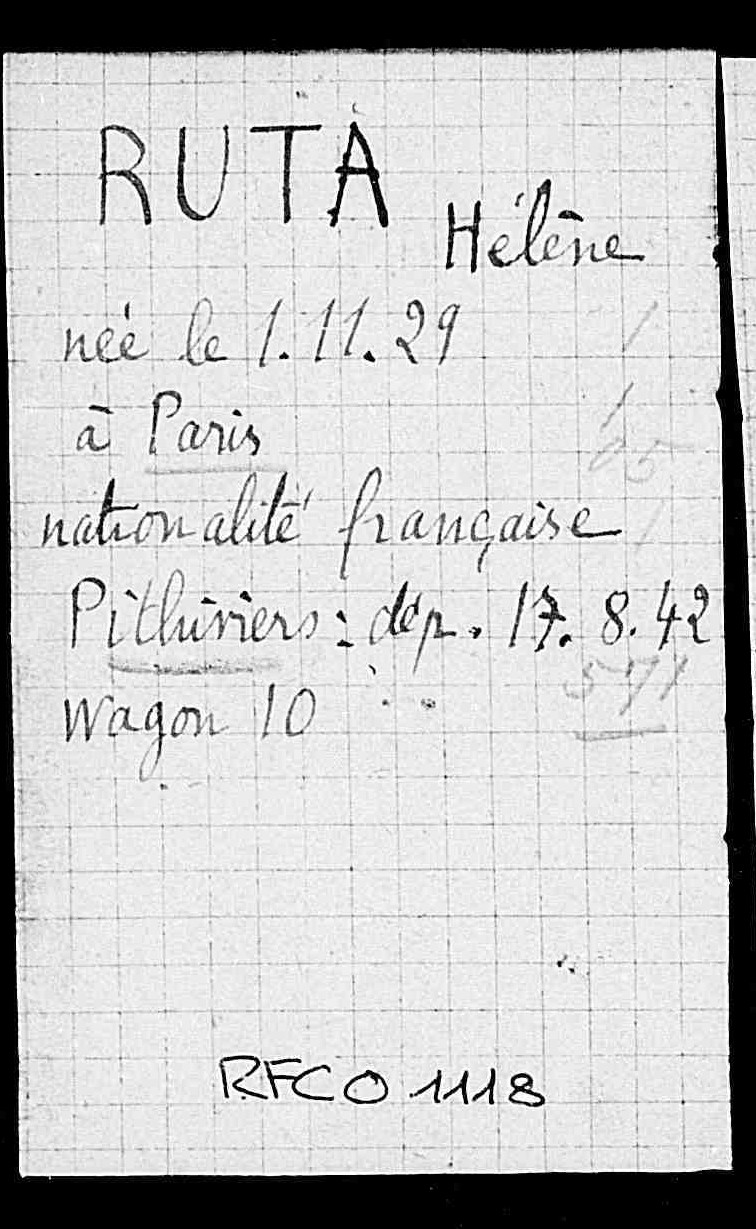 RUTA
Hélène
née le 1.11.29
à Paris
nationalité française
Pithiviers : dép. 17. 8. 42
571
Wagon 10
RFCO 1118